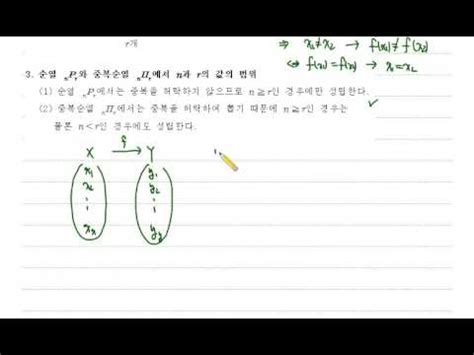 r개
⇒ x₁≠x₂ → f(x₁)≠f(x₂)
⇔ f(x₁)=f(x₂) → x₁=x₂
3. 순열 ₙPᵣ와 중복순열 ₙΠᵣ에서 n과 r의 값의 범위
(1) 순열 ₙPᵣ에서는 중복을 허락하지 않으므로 n≧r인 경우에만 성립한다.
(2) 중복순열 ₙΠᵣ에서는 중복을 허락하여 뽑기 때문에 n≧r인 경우는
물론 n<r인 경우에도 성립한다.
X f Y
x₁ y₁
x₂ y₂